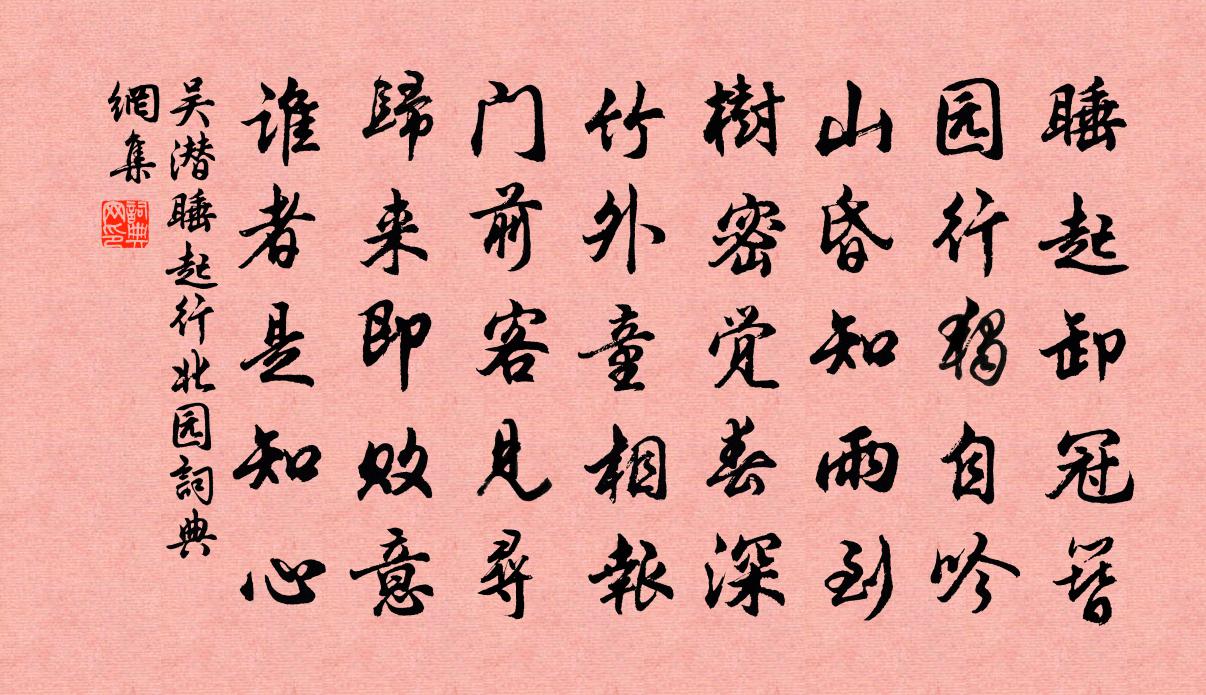 睡起卸冠簪
园行獨自吟
山昏知雨到
樹密觉春深
竹外童相報
门前客見尋
歸来即败意
谁者是知心
吴潜睡起行北园詞典
網集
詞典
网印